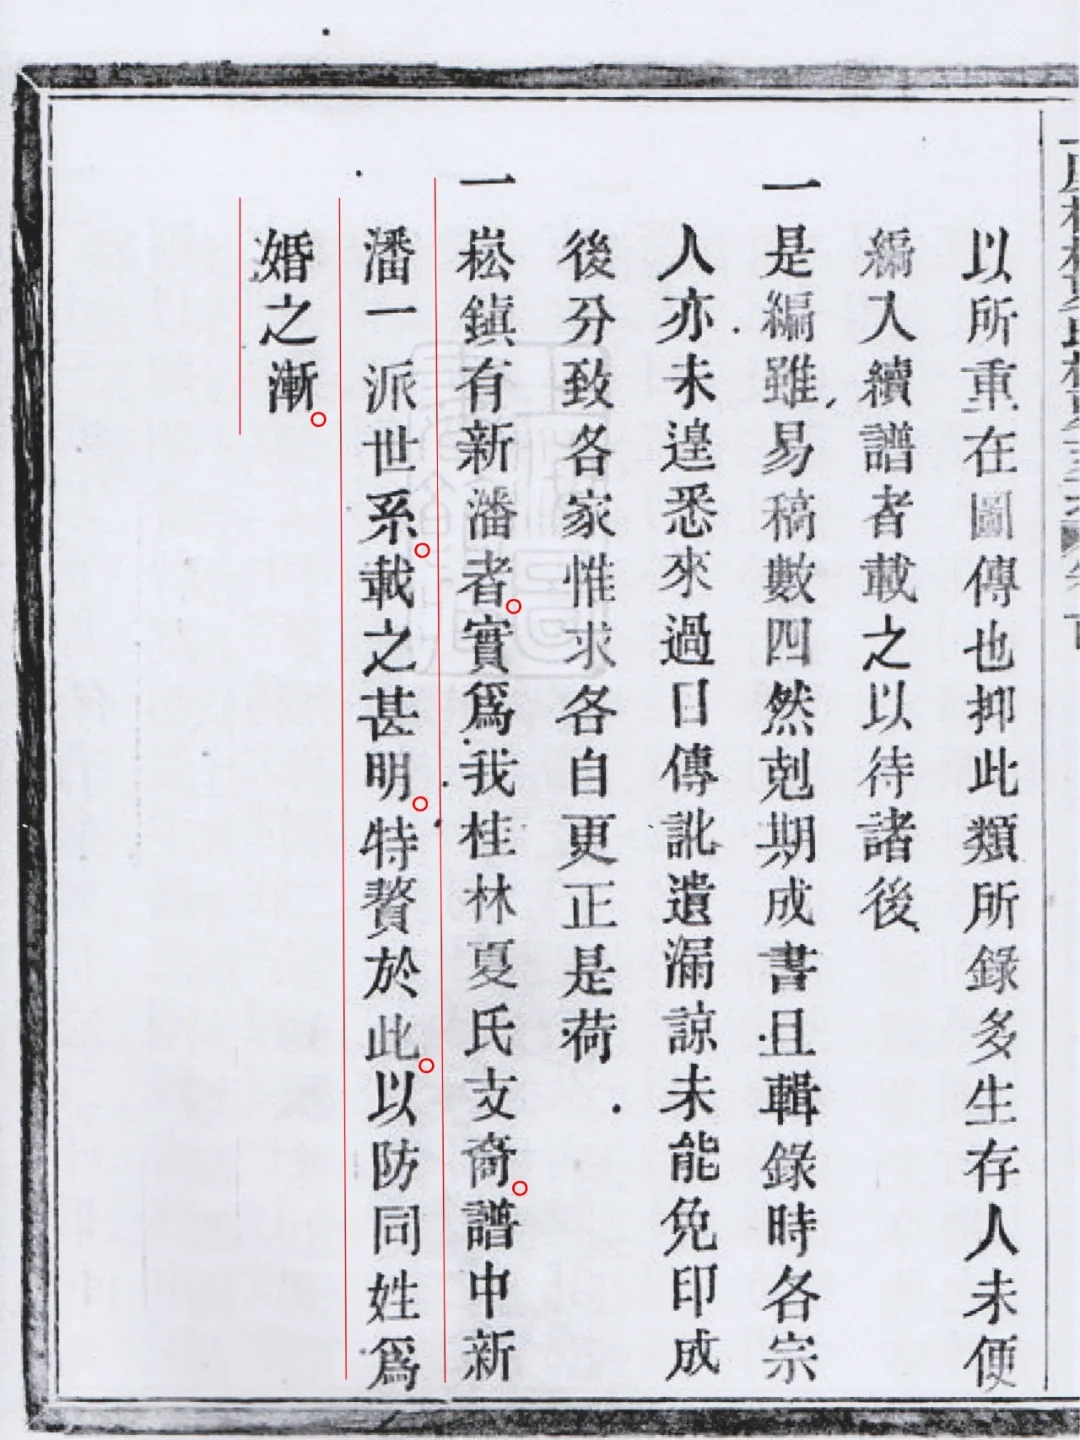 以所重在圖傳也抑此類所錄多生存人未便
編入續譜者載之以待諸後
一是編雖易稿數四然剋期成書且輯錄時各宗
人亦未遑悉來過目傳訛遺漏諒未能免印成
後分致各家惟求各自更正是荷
一崧鎮有新潘者。實爲我桂林夏氏支裔。譜中新
潘一派世系。載之甚明。特贅於此。以防同姓爲
婚之漸。